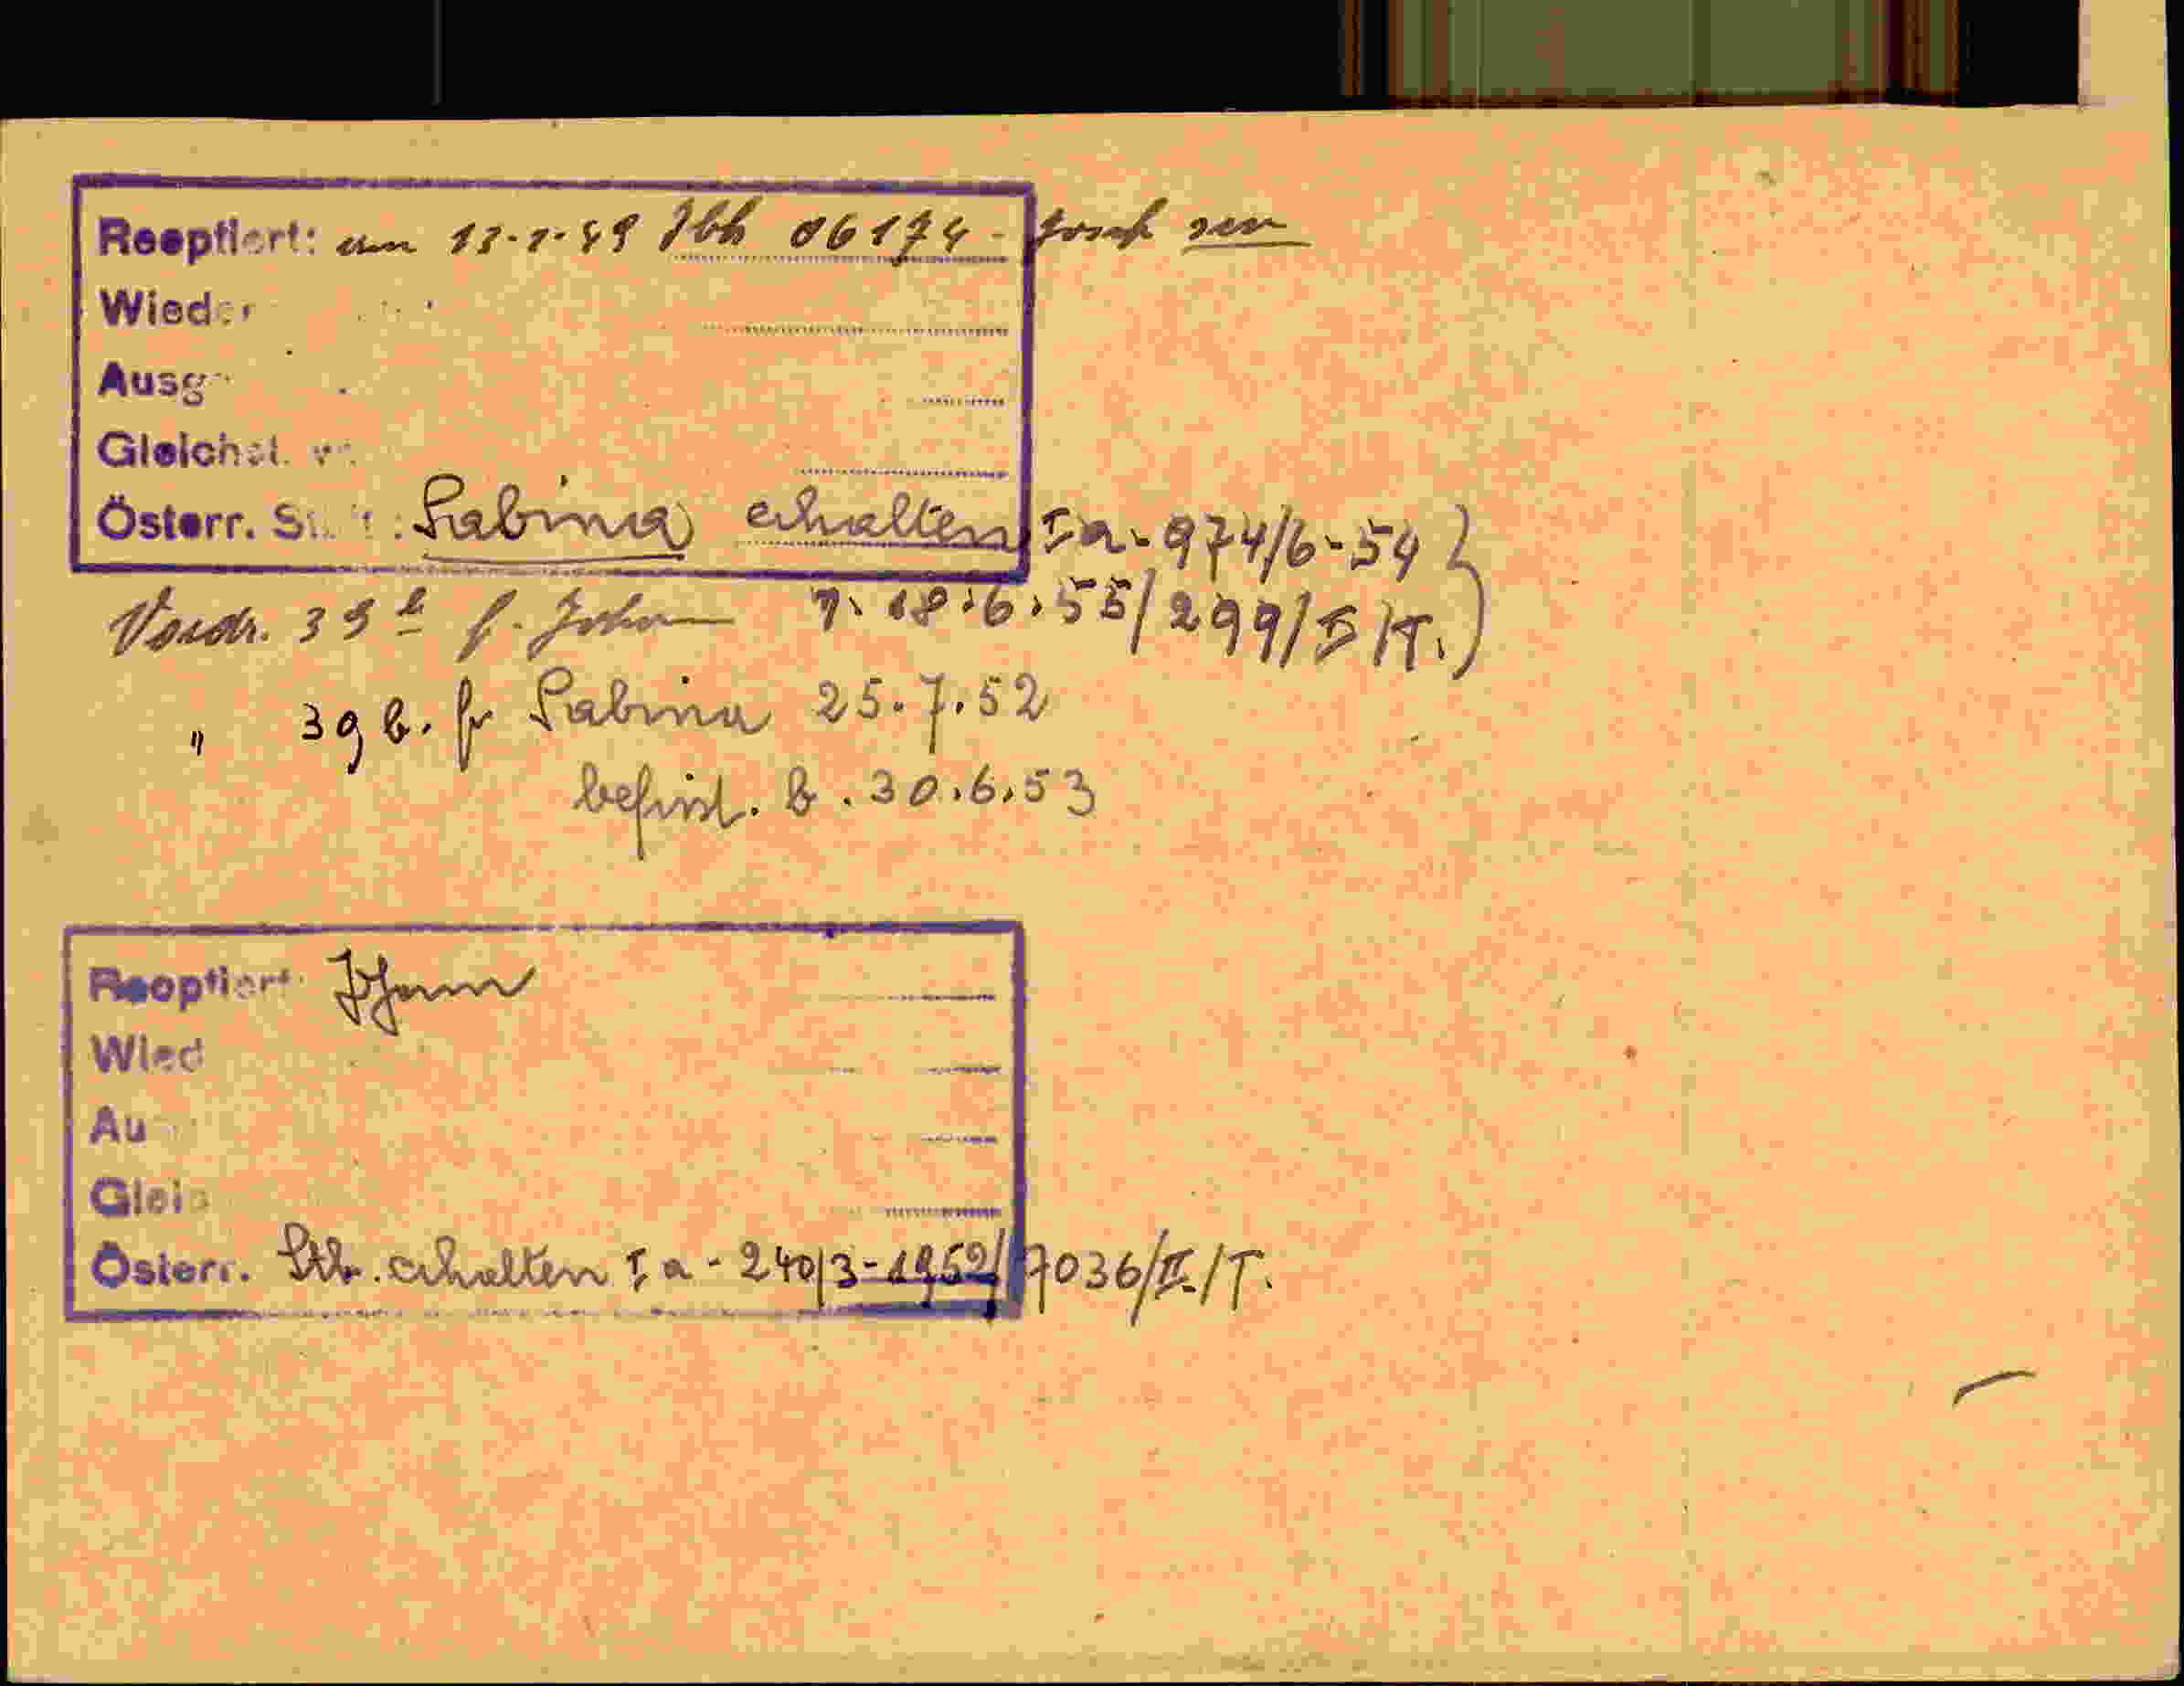 Reoptiert: am 13.1.49 Jbk 06174 - Josef sen
Wieder
Ausg
Gleichst. v.
Österr. St. : Sabina erhalten Ia-974/6-54
Vordr. 39 b f. Johann v. 18.6.55/299/II/T.)
" 39 b. fr Sabina 25.7.52
befrist. b. 30.6.53
Reoptiert Johann
Wied
Au
Glei
Österr. Stb. erhalten Ia-240/3-1952/7036/II/T.